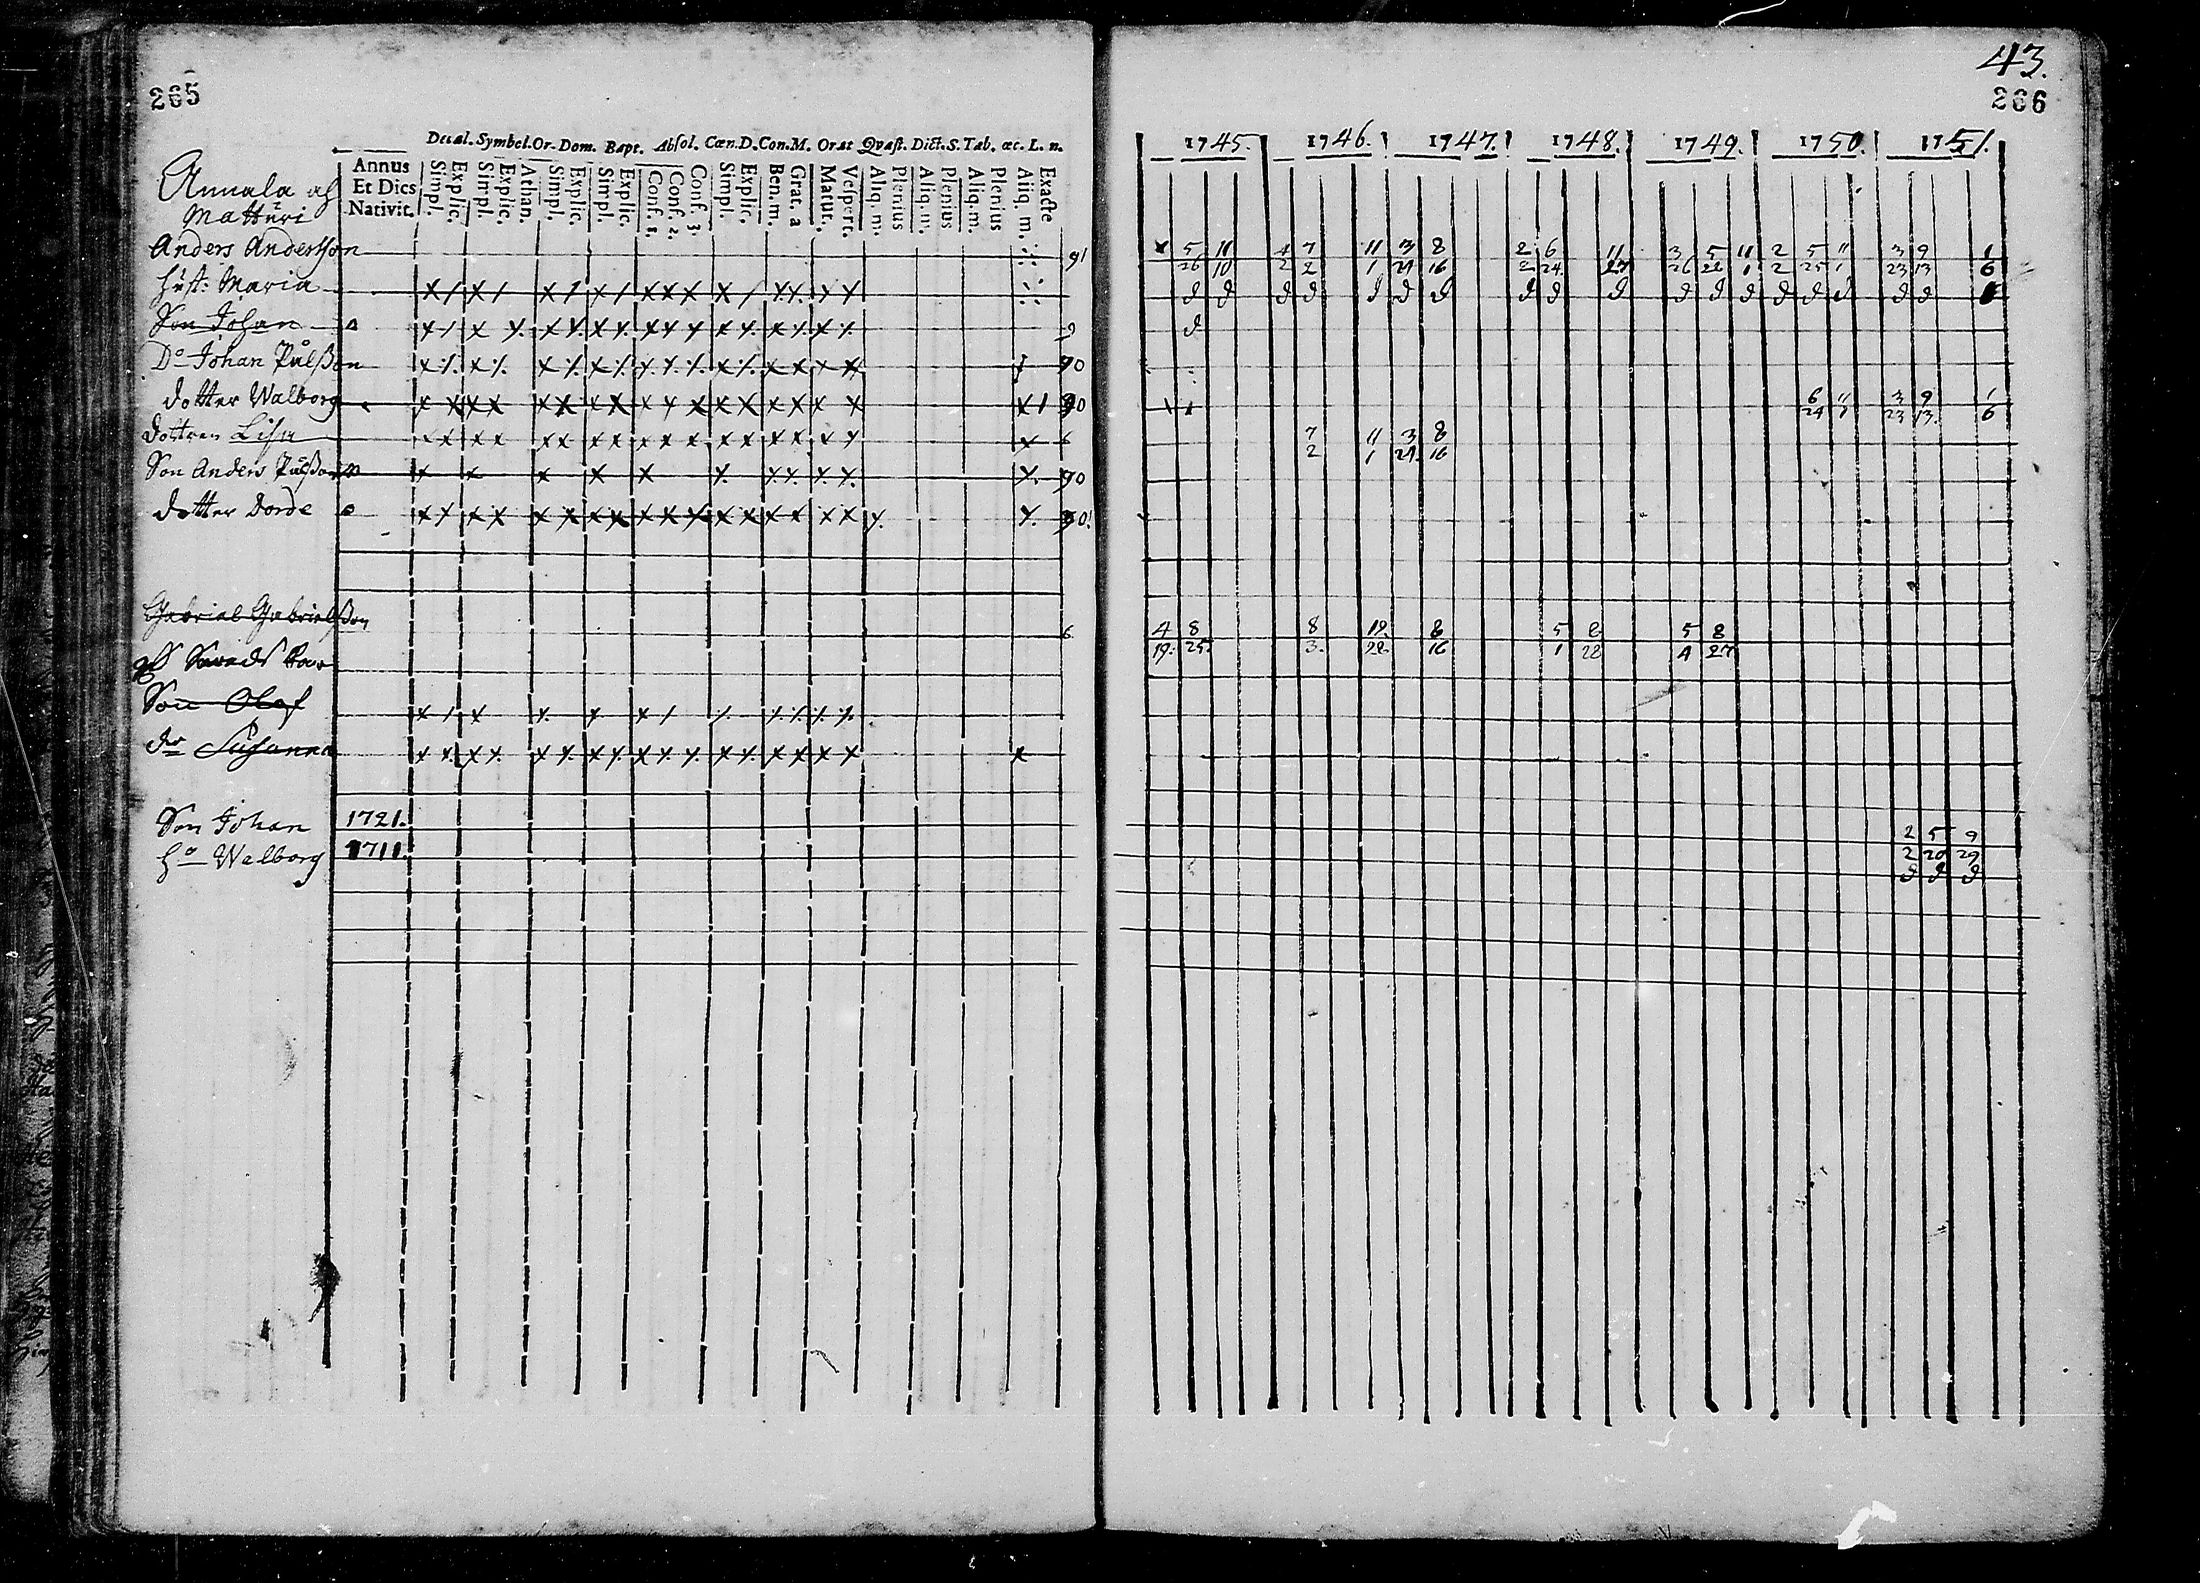 265
43.
266
Decal. Symbol. Or. Dom. Bapt. Absol. Cœn. D. Con. M. Orat Qvæst. Dict. S. Tab. œc. L. n.
Annus Et Dies Nativit.
Simpl. Explic. Simpl. Explic. Athan. Simpl. Explic. Simpl. Explic. Conf. 1. Conf. 2. Conf. 3. Simpl. Explic. Ben. m. Grat. a Matut. Vespert. Aliq. m. Plenius Aliq. m. Plenius Aliq. m. Plenius Aliq. m. Exacte
1745. 1746. 1747. 1748. 1749. 1750. 1751.
Annala al
Matturi
Anders Andersson 91
5 11 4 7 11 3 8 2 6 11 3 5 11 2 5 11 3 9 1
26 10 2 2 1 29 16 2 24 27 26 28 1 2 25 1 23 13 6
hust: Maria
Son Johan 9
Do Johan Pålsson 90
dotter Walborg
6 11 3 9 1
24 1 23 13. 6
dottren Lisa 6
7 11 3 8
2 1 29. 16
Son Anders Pålsson 90
dotter Dorde
Gabriel Gabrielsson 6
4 8 8 19. 8 5 8 5 8
19. 25. 3. 28. 16 1 28 4 27
Son Olof
dr Susanna
Son Johan 1721. 2 5 9
ho Walborg 1711. 2 20 29